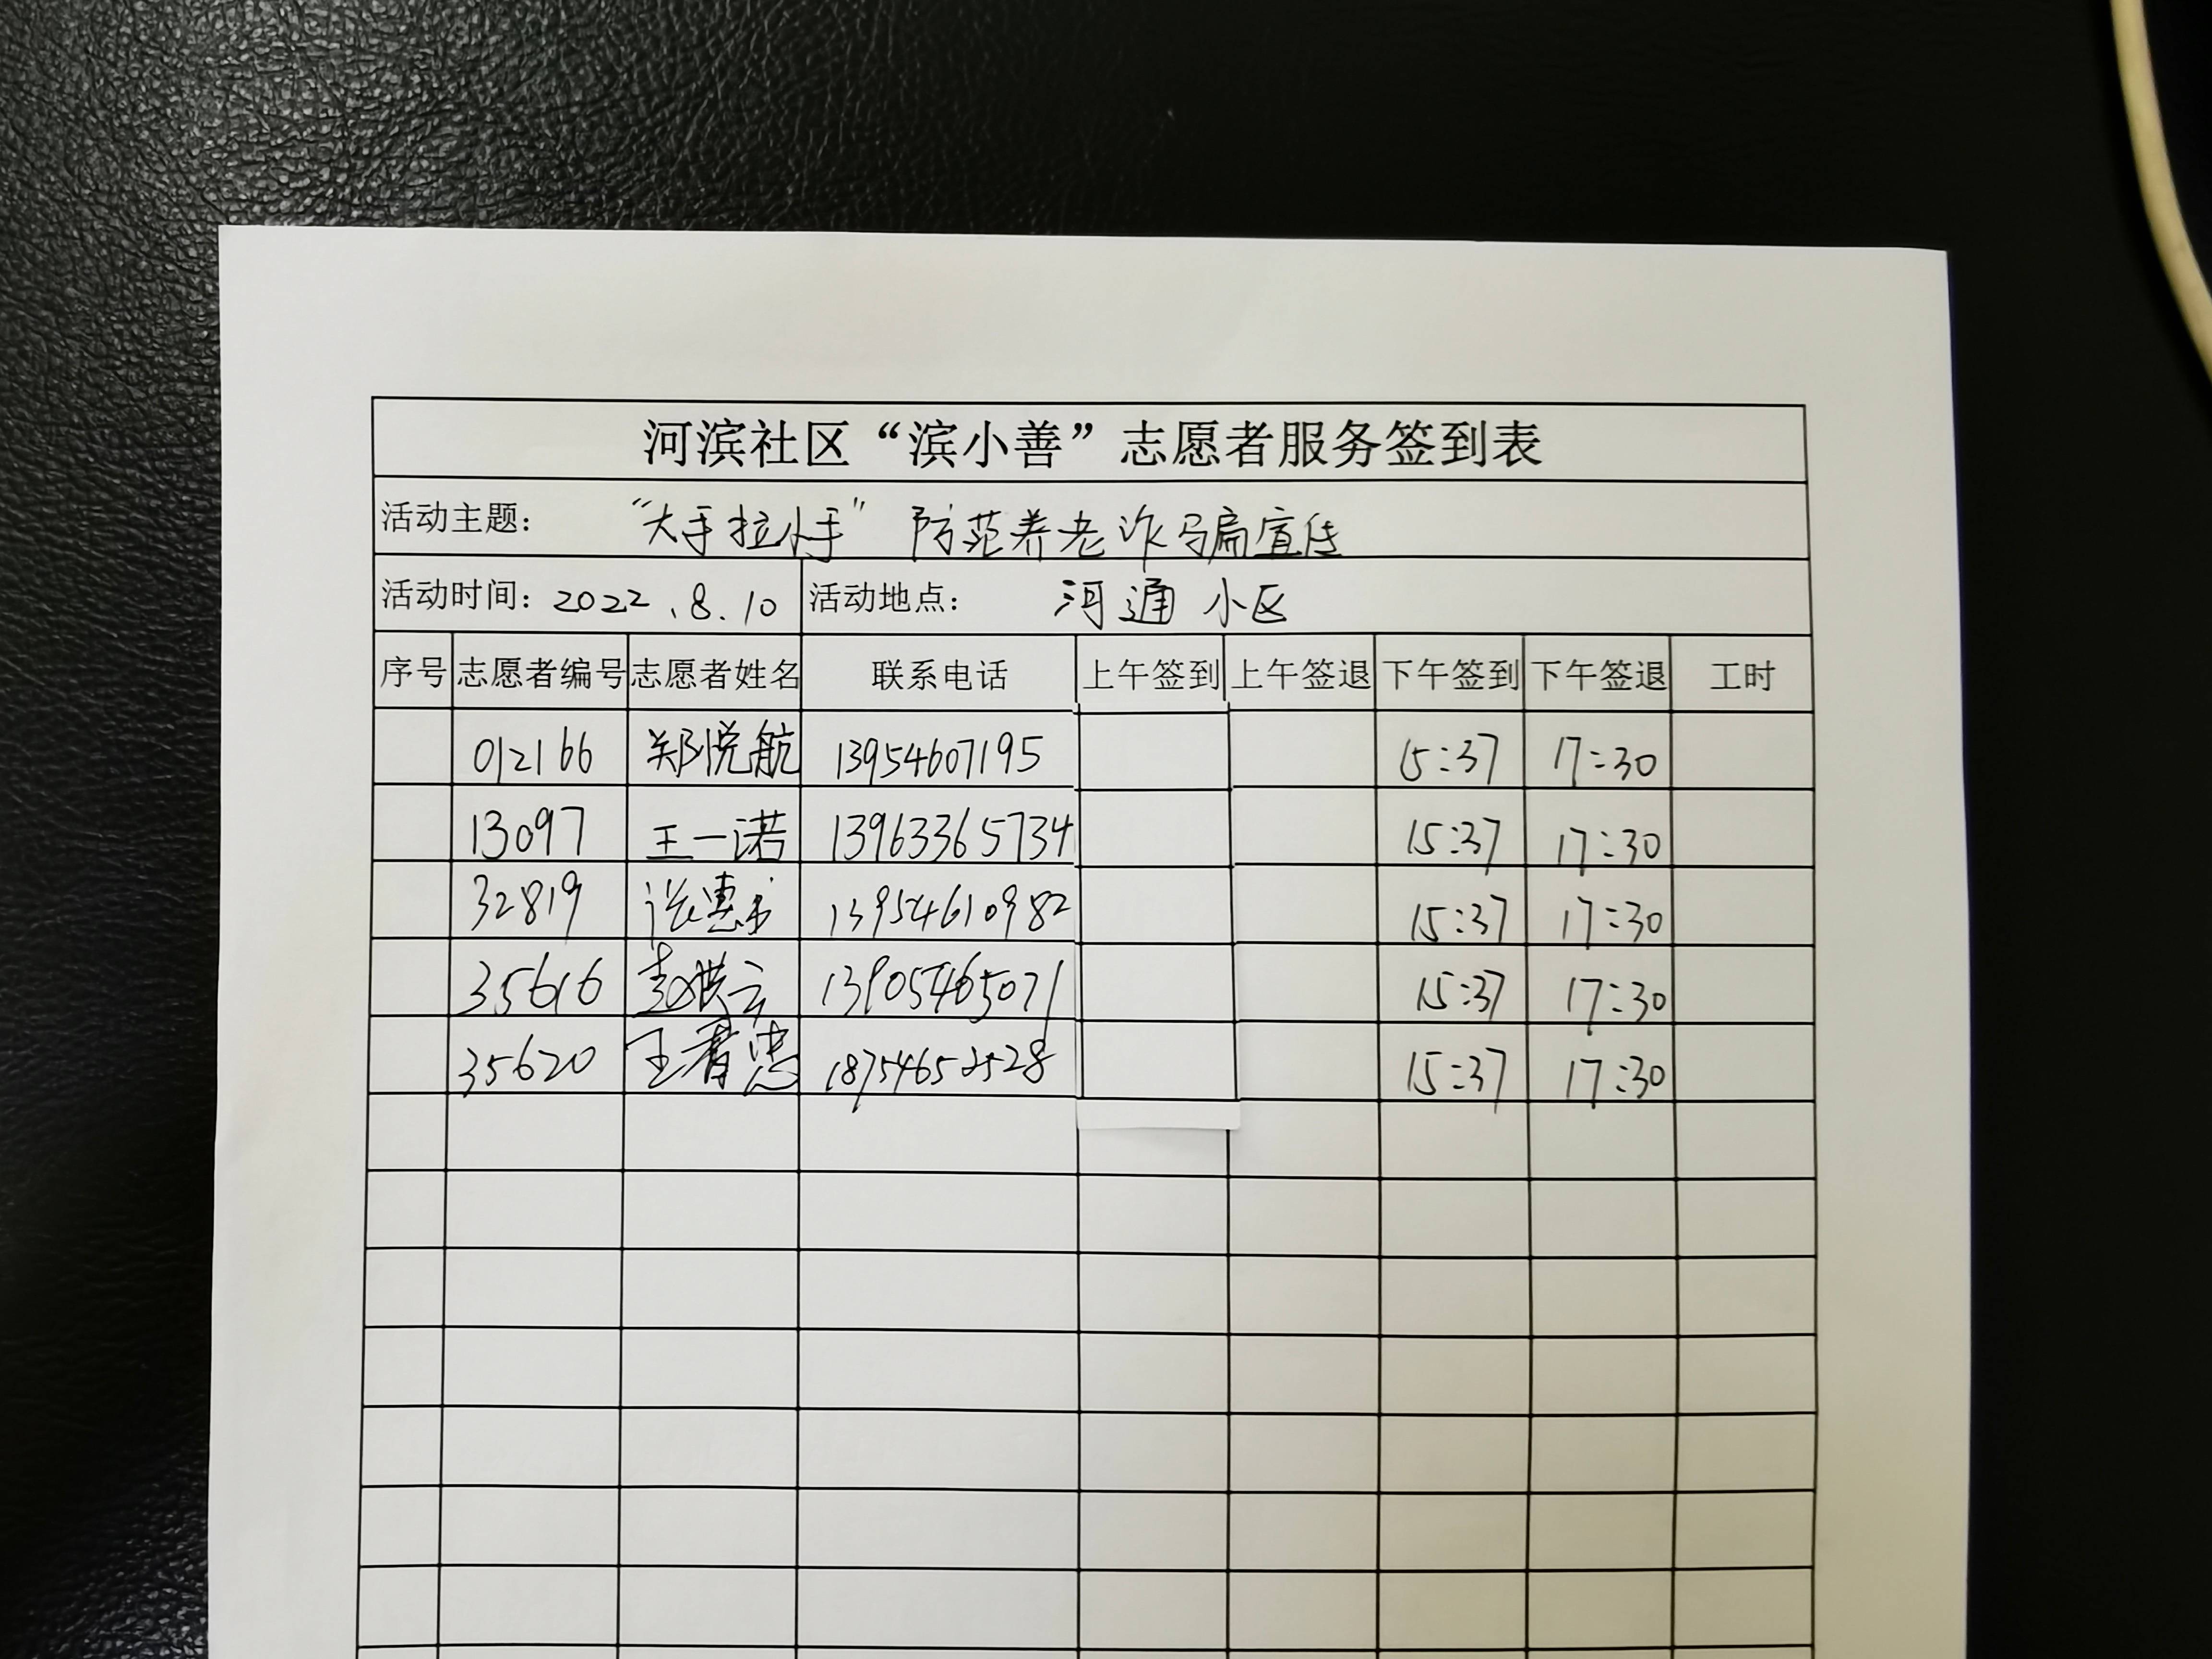 河滨社区“滨小善”志愿者服务签到表
活动主题： “大手拉小手” 防范养老诈骗宣传
活动时间：2022.8.10 活动地点： 河通小区
序号 志愿者编号 志愿者姓名 联系电话 上午签到 上午签退 下午签到 下午签退 工时
012166 郑悦航 13954607195 15:37 17:30
13097 王一诺 13963365734 15:37 17:30
32819 13954610982 15:37 17:30
35616 赵洪云 13905465071 15:37 17:30
35620 15:37 17:30